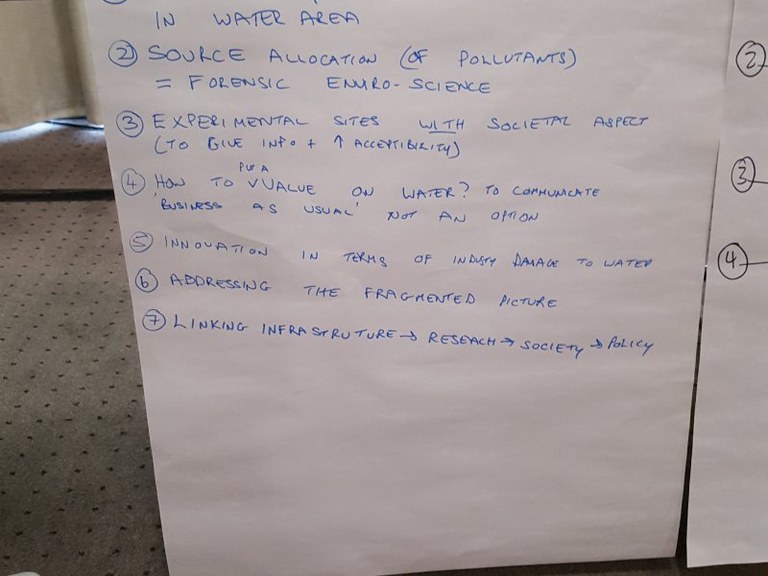 IN WATER AREA
② SOURCE ALLOCATION (OF POLLUTANTS)
= FORENSIC ENVIRO-SCIENCE
③ EXPERIMENTAL SITES WITH SOCIETAL ASPECT
(TO GIVE INFO + ↑ ACCEPTIBILITY)
④ HOW TO PUT A VALUE ON WATER? TO COMMUNICATE
'BUSINESS AS USUAL' NOT AN OPTION
⑤ INNOVATION IN TERMS OF INDUSTY DAMAGE TO WATER
⑥ ADDRESSING THE FRAGMENTED PICTURE
⑦ LINKING INFRASTRUTURE → RESEACH → SOCIETY → POLICY
②
③
④